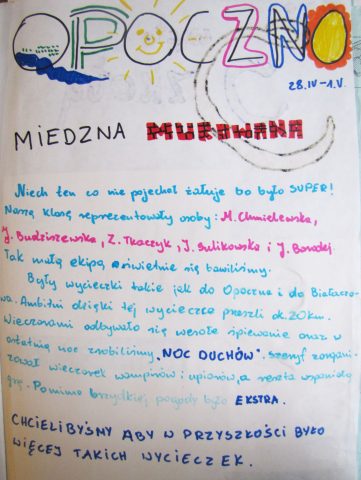 OPOCZNO
28.IV-1.V.
MIEDZNA MUROWANA
Niech ten co nie pojechał żałuje bo było SUPER!
Naszą klasę reprezentowały osoby: M. Chmielewska,
J. Budziszewska, Z. Tkaczyk, J. Sulikowska i J. Borodej.
Tak małą ekipą świetnie się bawiliśmy.
Były wycieczki takie jak do Opoczna i do Białaczo-
wa. Ambitni dzięki tej wycieczce przeszli ok. 20 km.
Wieczorami odbywało się wesołe śpiewanie oraz w
ostatnią noc zrobiliśmy "NOC DUCHÓW". szeryf zorgani-
zował wieczorek wampirów i upiorów, a reszta wspaniałą
grę. Pomimo brzydkiej pogody było EKSTRA.
CHCIELIBYŚMY ABY W PRZYSZŁOŚCI BYŁO
WIĘCEJ TAKICH WYCIECZEK.